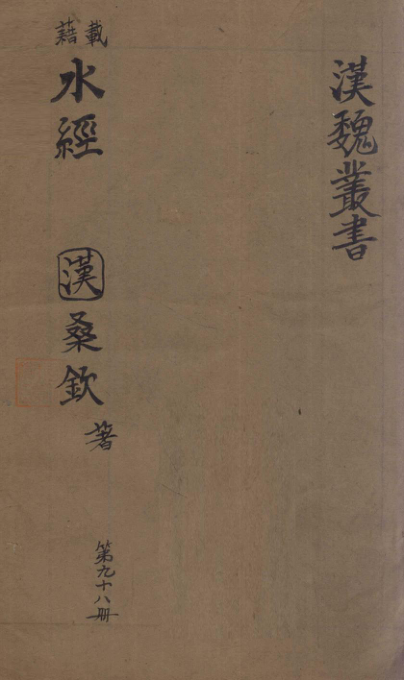 漢魏叢書
載籍
水經
漢 桑欽 著
第九十八冊